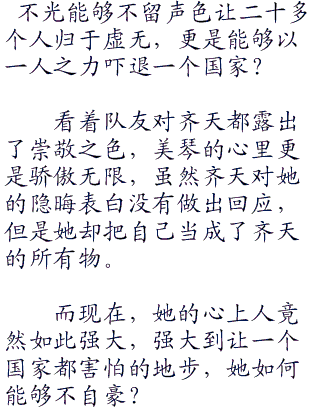 不光能够不留声色让二十多
个人归于虚无，更是能够以
一人之力吓退一个国家？
看着队友对齐天都露出
了崇敬之色，美琴的心里更
是骄傲无限，虽然齐天对她
的隐晦表白没有做出回应，
但是她却把自己当成了齐天
的所有物。
而现在，她的心上人竟
然如此强大，强大到让一个
国家都害怕的地步，她如何
能够不自豪？